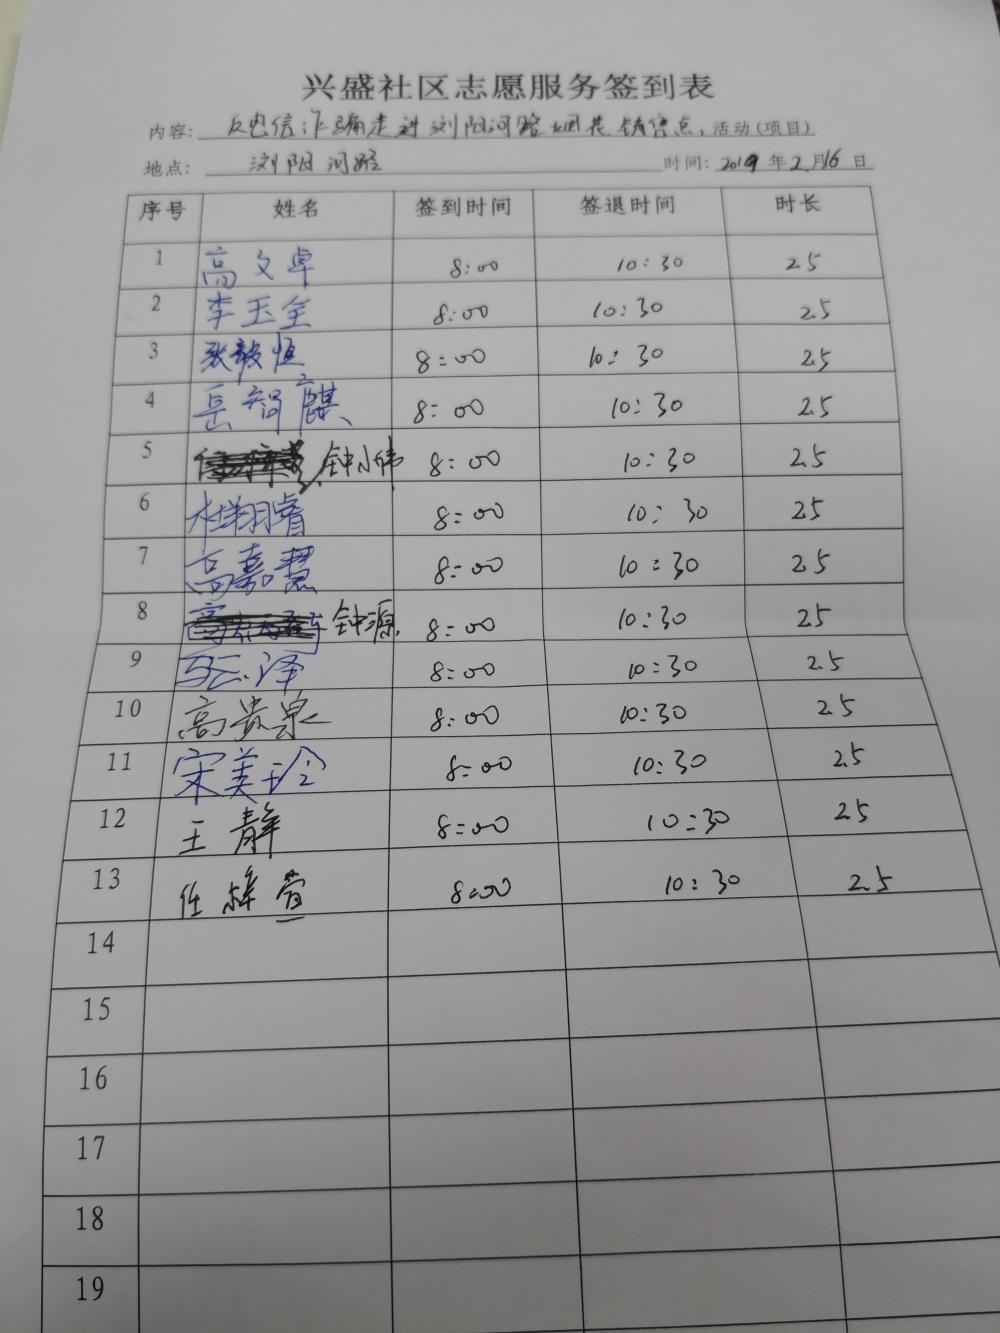 兴盛社区志愿服务签到表
内容: 反电信诈骗走进浏阳河路烟花销售点, 活动(项目)
地点: 浏阳河路 时间: 2019 年 2 月 16 日
序号 姓名 签到时间 签退时间 时长
1 高文卓 8:00 10:30 2.5
2 李玉全 8:00 10:30 2.5
3 张毅恒 8:00 10:30 2.5
4 岳智麒 8:00 10:30 2.5
5 钟小伟 8:00 10:30 2.5
6 翔睿 8:00 10:30 2.5
7 高嘉慧 8:00 10:30 2.5
8 钟源 8:00 10:30 2.5
9 泽 8:00 10:30 2.5
10 高贵泉 8:00 10:30 2.5
11 宋美玲 8:00 10:30 2.5
12 王静 8:00 10:30 2.5
13 任梓萱 8:00 10:30 2.5
14
15
16
17
18
19